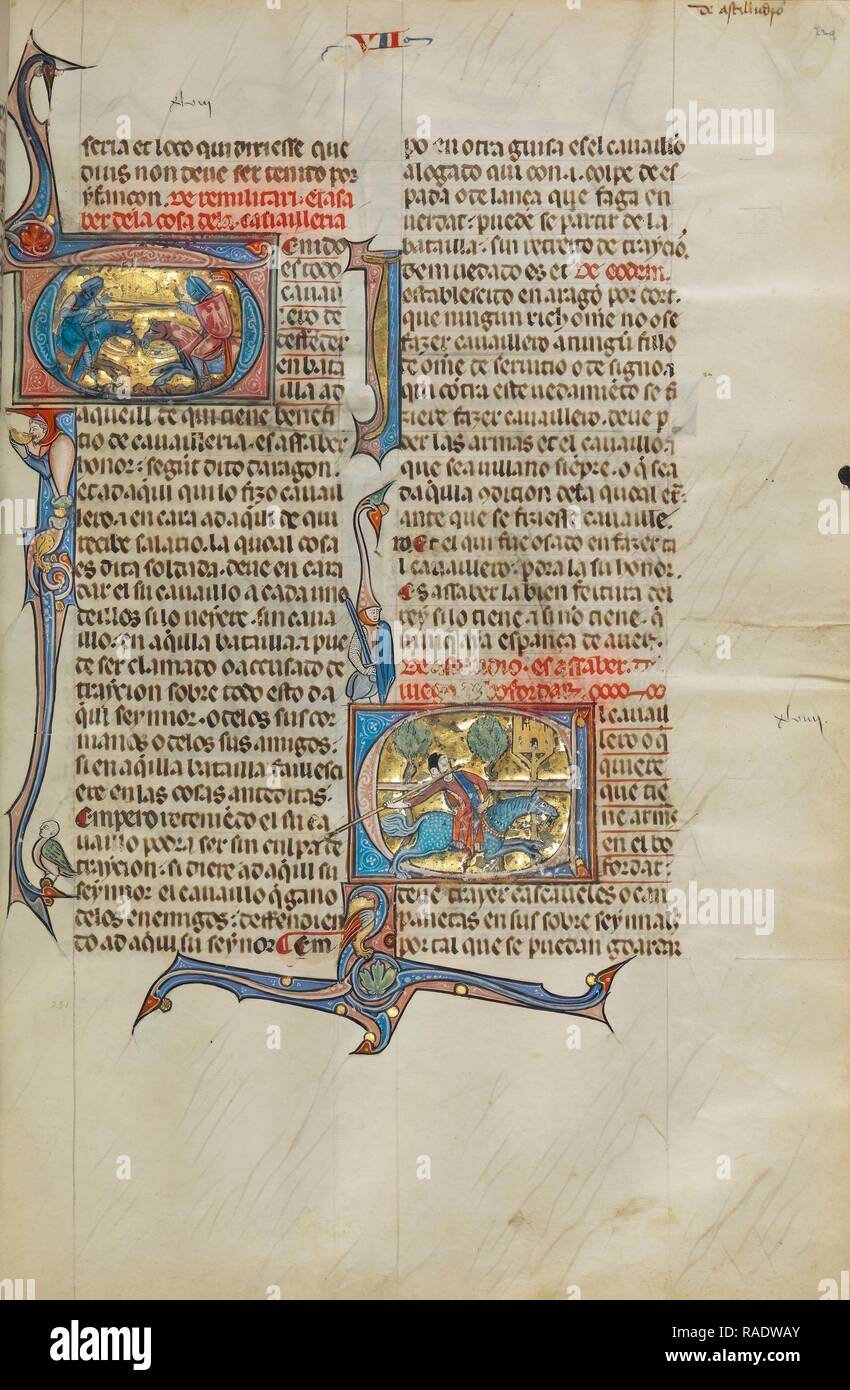 de astilludio
VII
xlviij
seria et loco qui dixiesse que
diuis non deue ser tenito por
yfançon. De re militari. es asa
ber de la cosa de la. cauailleria
En ido
es todo
cauail
lero de
deffeder
en bata
illa ad
aqueill de qui tiene benefi
cio de cauailleria. es assaber
honor. segũt dito daragon.
et ad aqui qui lo fizo cauail
lero. en cara ad aqui de qui
recibe salario. la quoal cosa
es dita soldada. deue en cara
dar el su cauaillo a cada uno
deillos si lo
sin caua
illo. en aq̃illa batailla. pue
de ser clamado o accusado de
trayçion sobre todo esto da
qui seynnor. o de los sus cor
manos o de los sus amigos.
si en aq̃illa batailla failliesci
ere en las cosas anteditas.
Empero retenie͂do el su ca
uaillo podra ser sin culpa de
trayçion. si diere ad aq̃ui su
seynnor el cauaillo q̃ gano
de los enemigos. deffendien
do ad aqui su seynor. Em
po en otra guisa es el cauaillo
alogado qui con .i. colpe de es
pada o de lança que faga en
uerdat. puede se partir de la
batailla. sin retreito de trayció.
Demuedado es et De eodem.
establescito en aragó por cort.
que ningun rich ome no ose
fazer cauaillero a ningũ fillo
de ome de seruitio o de signo.
qui cótra este uedamiéto se fi
ziere fazer cauaillero. deue p
der las armas et el cauaillo.
que sea uillano siépre. o q̃ sea
da q̃lla ódicion de la quoal er.
ante que se fiziesse cauaille.
ro. Et el qui fue osado en fazer ta
l cauaillero. pora la su honor.
Es assaber la bien feitura del
rey si lo tiene. si no tiene. q̃
espança de auer.
De es assaber
le cauail
lero o q
quiere
que tie
ne arme
en el bo
fordar.
deue trayer cascaueles o can
panetas en sus sobre seynnal
por tal que se puedan goardar
xlviiij.
231
alamy
Image ID: RADWAY
www.alamy.com